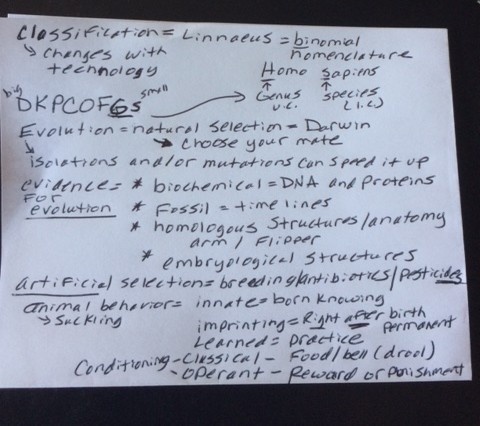 Classification = Linnaeus = binomial
nomenclature
↳ changes with
technology
Homo sapiens
↑ ↑
Genus species
u.c. (l.c.)
big small
DKPCOFGs →
Evolution = natural selection = Darwin
→ choose your mate
↳ isolations and/or mutations can speed it up
evidence = * biochemical = DNA and proteins
FOR
evolution * Fossil = time lines
* homologous structures/anatomy
arm / Flipper
* embryological structures
artificial selection = breeding/antibiotics/pesticides
animal behavior = innate = born knowing
→ suckling
imprinting = Right after birth
permanent
Learned = practice
Conditioning - classical - Food/bell (drool)
- operant - Reward or punishment